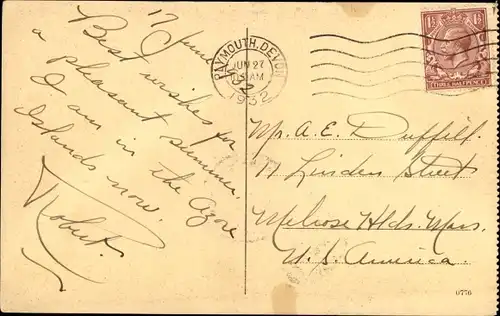 17 June
Best wishes for
a pleasant summer.
I am in the Azore
Islands now.
Robert.
PAYMOUTH, DEVON
JUN 27
AM
1932
1½D 1½D
THREE HALFPENCE
Mr. A. E. Duffill.
17 Linden Street
Melrose Hlds. Mass.
U. S. America.
0776